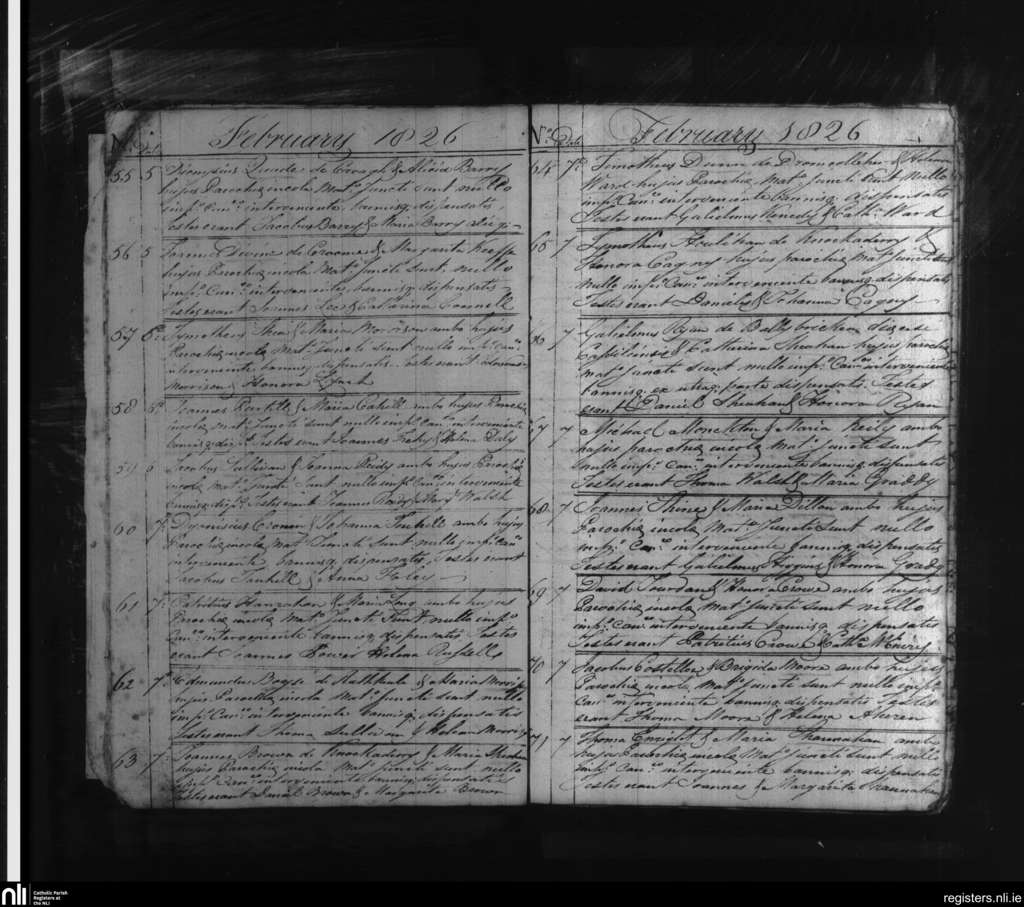 No. Date February 1826
55 5 Dionysius Quade de Cavagh & Alicia Barry
hujus Parochiæ incolæ Mato. Juncti sunt nullo
impo. Cano. interveniente, bannisq. dispensatis
Testes erant Jacobus Barry & Maria Barry
56 5 Devine de Croome & Margarita Keeffe
hujus Parochiæ incolæ Mato. Juncti sunt nullo
impo. Cano. interveniente, bannisq. dispensatis
Testes erant Lee & Catharina Connell
57 5o. Tymotheus Shea & Maria Morrison ambo hujus
Parochiæ incolæ Mato. Juncti sunt nullo impo. Cano.
interveniente bannisq. dispensatis. Testes erant
Morrison & Honora Lynch
58 5o. Joannes & Maria Cahill ambo hujus Parochiæ
incolæ Mato. Juncti sunt nullo impo. Cano. interveniente
bannisq. dispo. Testes erant Joannes Fahy & Helena Daly
59 5 Jacobus Sullivan & Joanna Reidy ambo hujus Parochiæ
incolæ Mato. Juncti sunt nullo impo. Cano. interveniente
bannisq. dispo. Testes erant Joannes Reidy & Margt. Walsh
60 7o. Dyonisius Cronen & Johanna Tuohill ambo hujus
Parochiæ incolæ Mato. Juncti sunt nullo impo. Cano.
interveniente, bannisq. dispensatis, Testes erant
Jacobus Tuohill & Anna Foley
61 7o. Patritius Hanrahan & Maria Long ambo hujus
Parochiæ incolæ Mato. Juncti Sunt nullo impo.
Cano. interveniente bannisq. dispensatis Testes
erant Joannes Power Helena Russell
62 7o. Edmundus Boyse de Rathkeale & Maria Morrissy
hujus Parochiæ incola Mato. Juncti sunt nullo
impo. Cano. interveniente bannisq. dispensatis
Testes erant Thoma Sullivan & Helena Morrissy
63 7o. Joannes Brown de Knockaderry & Maria Sheehan
hujus Parochiæ incola Mato. Juncti sunt nullo
impo. Cano. interveniente bannisq. dispensatis
Testes erant Daniel Brown & Margarita Brown
No. Date February 1826
64 7o. Timotheus Dunn de Dromcollaher & Helena
Ward hujus Parochiæ Mato. Juncti sunt nullo
impo. Cano. interveniente bannisq. dispensatis
Testes erant Gulielmus Kenedy & Catha. Ward
65 7 Tymotheus Houlihan de Knockaderry &
Honora Cagny hujus parochiæ Mato. juncti sunt
nullo impo. Cano. interveniente bannisq. dispensatis
Testes erant Daniels & Johanna Cagny
66 7 Gulielmus Ryan de Ballybricken diocese
& Catharina Sheahan hujus parochiæ
Mato. juncti sunt nullo impo. Cano. interveniente
bannisq. ex utraq. parte dispensatis. Testes
erant Daniel Sheehan & Honora Ryan
67 7 Michael Moneltin & Maria Reily ambo
hujus parochiæ incolæ Mato. Juncti sunt
nullo impo. Cano. interveniente bannisq. dispensatis
Testes erant Thoma Walsh & Maria Graddy
68 7 Joannes Shine & Maria Dillon ambo hujus
Parochiæ incolæ Mato. Juncti Sunt nullo
impo. Cano. interveniente bannisq. dispensatis
Testes erant Gulielmus Higgins & Honora Grady
69 7 David Jourdan & Honora Crowe ambo hujus
Parochiæ incolæ Mato. Juncti sunt nullo
impo. Cano. interveniente bannisq. dispensatis
Testes erant Patritius Crowe & Catha.
70 7 Jacobus Costelloe & Brigida Moore ambo hujus
Parochiæ incolæ Mato. Juncti sunt nullo impo.
Cano. interveniente bannisq. dispensatis Testes
erant Thoma Moore & Helena Aherin
71 7 Thoma Enright & Maria Shaunahan ambo
hujus Parochiæ incolæ Mato. Juncti sunt nullo
impo. Cano. interveniente bannisq. dispensatis
Testes erant Joannes & Margarita Shaunahan
nli Catholic Parish
Registers at
the NLI
registers.nli.ie